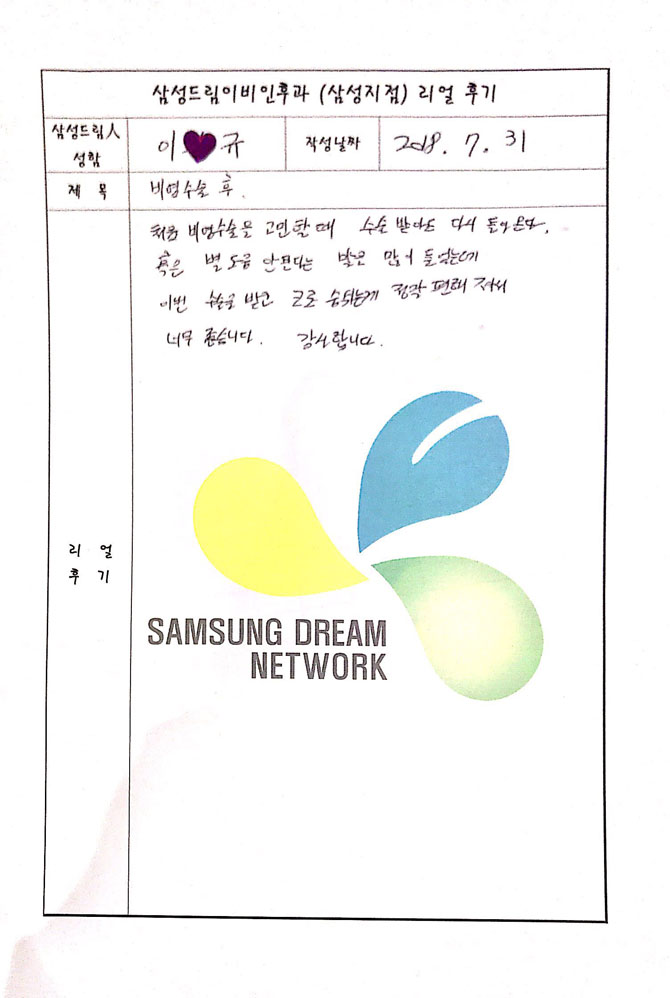 삼성드림이비인후과 (삼성지점) 리얼 후기
삼성드림人
성함
이 규
작성날짜
2018. 7. 31
제 목
비염수술 후.
처음 비염수술을 고민할 때 수술 받아도 다시 돌아온다,
혹은 별 도움 안된다는 말은 많이 들었는데
이번 수술을 받고 코로 숨쉬는게 정말 편해 져서
너무 좋습니다. 감사합니다.
리 얼
후 기
SAMSUNG DREAM
NETWORK